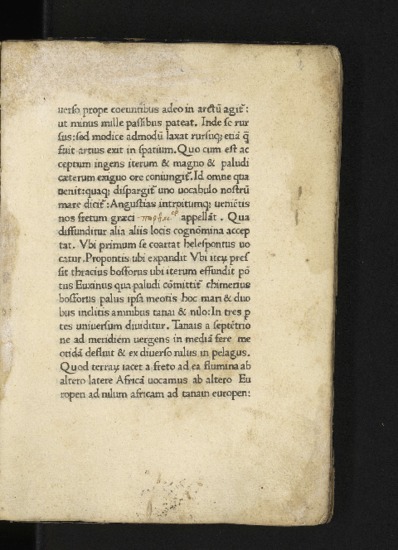 uerso prope coeuntibus adeo in arctū agit᷑:
ut minus mille passibus pateat. Inde se rur
sus: sed modice admodū laxat rursusq; etiā q̄
fuit artius exit in spatium. Quo cum est ac
ceptum ingens iterum & magno & paludi
cæterum exiguo ore coniungit᷑. Id omne qua
uenit: quaq; dispargit᷑ uno uocabulo nostrū
mare dicit᷑: Angustias introitumq; ueniētis
nos fretum græci appellāt. Qua
diffunditur alia aliis locis cognōmina accep
tat. Vbi primum se coartat helespontus uo
catur. Propontis ubi expandit Vbi iteꝝ pres
sit thracius bosforus ubi iterum effundit pō
tus Euxinus qua paludi cōmittit᷑ chimerius
bosforus palus ipsa meotis hoc mari & duo
bus inclitis amnibus tanai & nilo: In tres p
tes uniuersum diuiditur. Tanais a septētrio
ne ad meridiem uergens in mediā fere meo
tidā defluit & ex diuerso nilus in pelagus.
Quod terraꝝ iacet a freto ad ea flumina ab
altero latere Africā uocamus ab altero Eu
ropen ad nilum africam ad tanain europen: